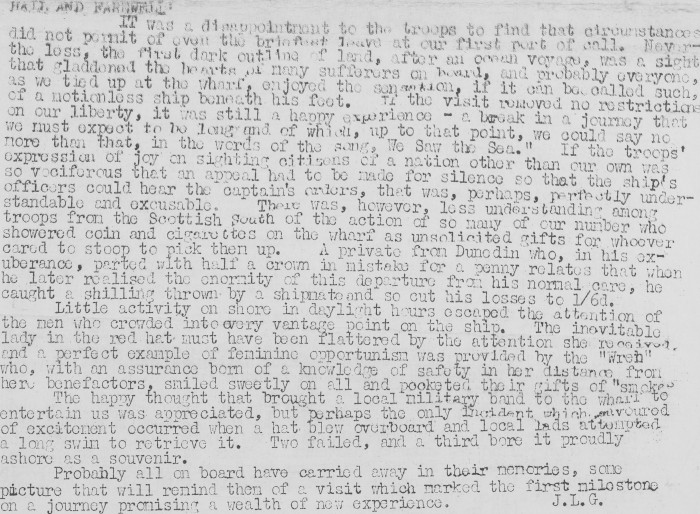 HAIL AND FAREWELL:
IT was a disappointment to the troops to find that circumstances
did not permit of even the briefest leave at our first port of call. Never-
the less, the first dark outline of land, after an ocean voyage, was a sight
that gladdened the hearts of many sufferers on board, and probably everyone,
as we tied up at the wharf, enjoyed the sensation, if it can be called such,
of a motionless ship beneath his feet. If the visit removed no restrictions
on our liberty, it was still a happy experience - a break in a journey that
we must expect to be long and of which, up to that point, we could say no
more than that, in the words of the song, We Saw the Sea." If the troops'
expression of joy on sighting citizens of a nation other than our own was
so vociferous that an appeal had to be made for silence so that the ship's
officers could hear the captain's orders, that was, perhaps, perfectly under-
standable and excusable. There was, however, less understanding among
troops from the Scottish South of the action of so many of our number who
showered coin and cigarettes on the wharf as unsolicited gifts for whoever
cared to stoop to pick them up. A private from Dunedin who, in his ex-
uberance, parted with half a crown in mistake for a penny relates that when
he later realised the enormity of this departure from his normal care, he
caught a shilling thrown by a shipmate and so cut his losses to 1/6d.
Little activity on shore in daylight hours escaped the attention of
the men who crowded into every vantage point on the ship. The inevitable
lady in the red hat must have been flattered by the attention she received,
and a perfect example of feminine opportunism was provided by the "Wren"
who, with an assurance born of a knowledge of safety in her distance from
here benefactors, smiled sweetly on all and pocketed their gifts of "smokes"
The happy thought that brought a local military band to the wharf to
entertain us was appreciated, but perhaps the only incident which savoured
of excitement occurred when a hat blew overboard and local lads attempted
a long swim to retrieve it. Two failed, and a third bore it proudly
ashore as a souvenir.
Probably all on board have carried away in their memories, some
picture that will remind them of a visit which marked the first milestone
on a journey promising a wealth of new experience. J.L.G.